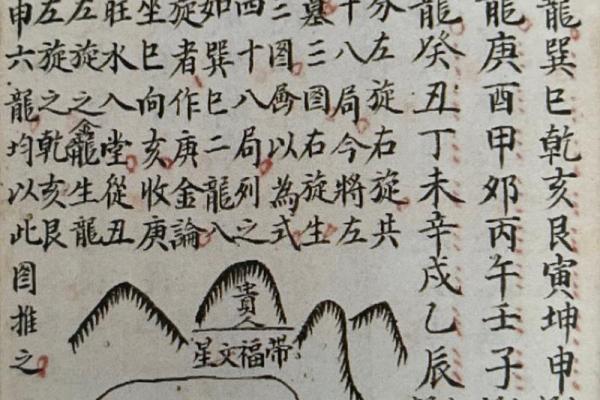 龍巽巳乾亥艮寅坤申
龍庚酉甲夘丙午壬子
龍癸丑丁未辛戌乙辰
分左旋右旋共
十八局今將左
墓三图右旋生
二图以為式
四十八局列之
如巽巳二龍八
旋者作庚金論
坐巳向亥收庚
旺水入堂從丑
左旋之金龍生龍
左旋之乾亥艮
申六龍均以此图推之
貴人
帶福文星